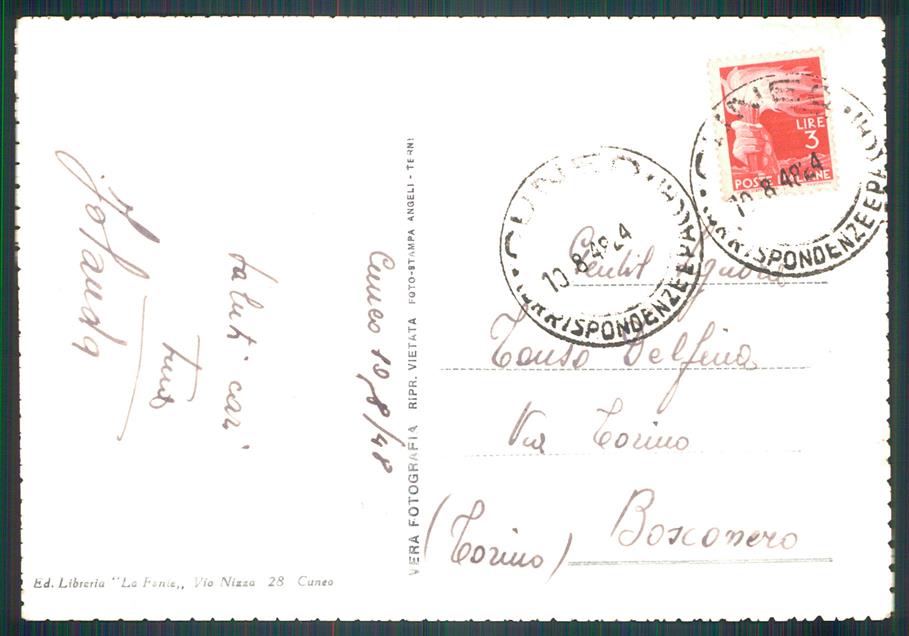 Cuneo 10/8/48
saluti cari
tua
Jolanda
VERA FOTOGRAFIA RIPR. VIETATA FOTO-STAMPA ANGELI - TERNI
Ed. Libreria "La Fonte,, Via Nizza 28 Cuneo
LIRE
3
POSTE ITALIANE
10-8 48 24
CUNEO
10-8 48 24
CORRISPONDENZE E PA
Gentil Signora
Tonso Delfina
Via Torino
Bosconero
(Torino)